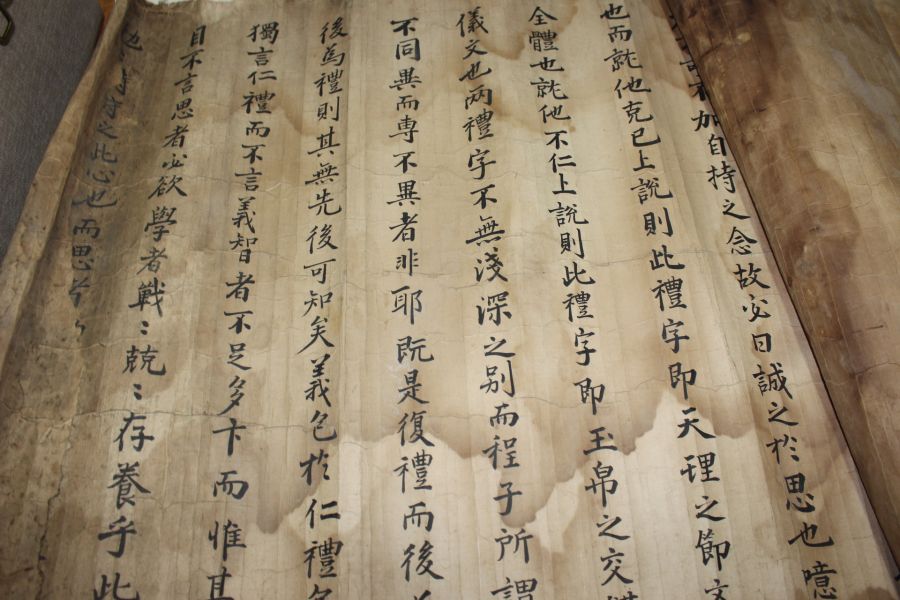 不加自持之念故必曰誠之於思也噫
也而就他克已上說則此禮字即天理之節文
全體也就他不仁上說則此禮字即玉帛之交
儀文也两禮字不無淺深之别而程子所謂
不同異而專不異者非耶既是復禮而後
後為禮則其無先後可知矣義包於仁禮
獨言仁禮而不言義智者不足多卞而惟其
目不言思者必欲學者戰〻兢〻存養乎此
之此心也而思